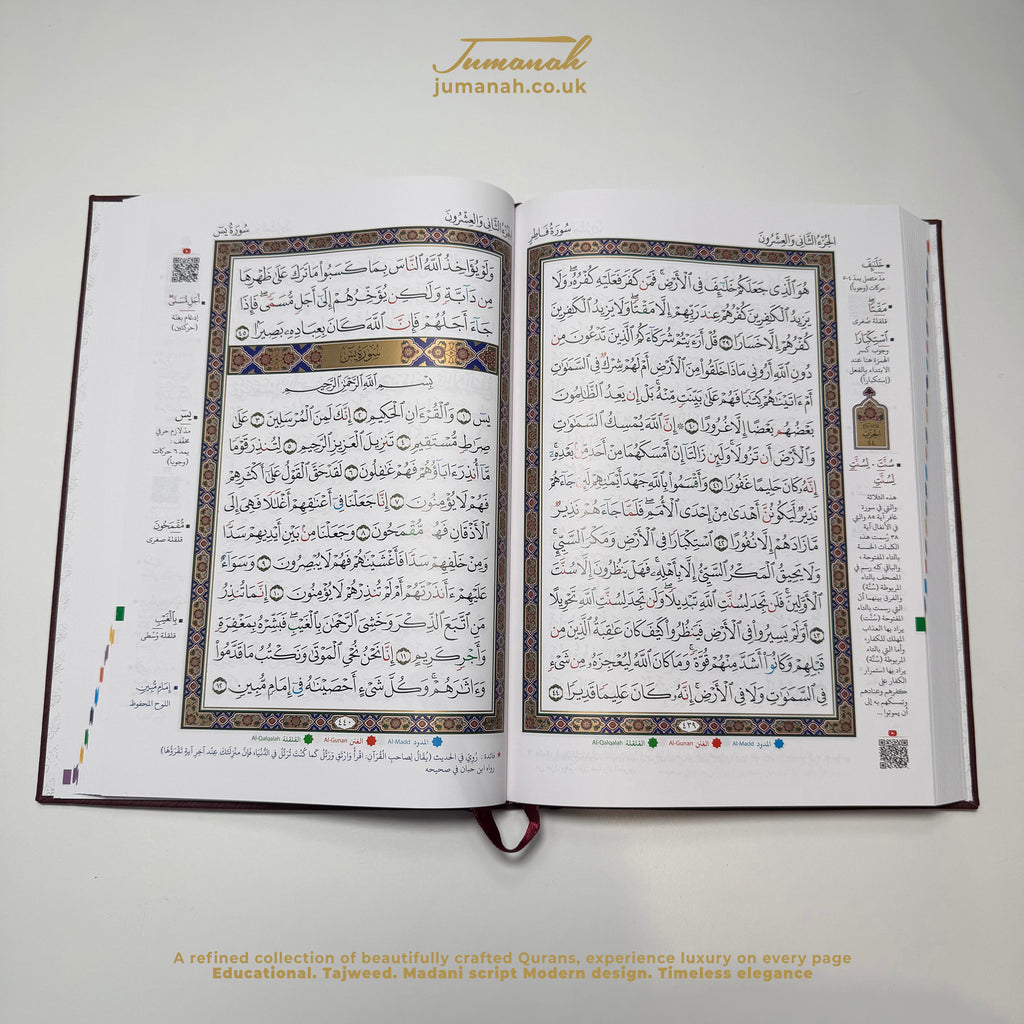 Jumanah
jumanah.co.uk
الجُزْءُ الثَّانِي وَالعِشْرُونَ
سُورَةُ فَاطِرٍ
هُوَ ٱلَّذِى جَعَلَكُمْ خَلَٰٓئِفَ فِى ٱلْأَرْضِ ۚ فَمَن كَفَرَ فَعَلَيْهِ كُفْرُهُۥ ۖ وَلَا
يَزِيدُ ٱلْكَٰفِرِينَ كُفْرُهُمْ عِندَ رَبِّهِمْ إِلَّا مَقْتًا ۖ وَلَا يَزِيدُ ٱلْكَٰفِرِينَ
كُفْرُهُمْ إِلَّا خَسَارًا ٣٩ قُلْ أَرَءَيْتُمْ شُرَكَآءَكُمُ ٱلَّذِينَ تَدْعُونَ مِن
دُونِ ٱللَّهِ أَرُونِى مَاذَا خَلَقُوا۟ مِنَ ٱلْأَرْضِ أَمْ لَهُمْ شِرْكٌ فِى ٱلسَّمَٰوَٰتِ
أَمْ ءَاتَيْنَٰهُمْ كِتَٰبًا فَهُمْ عَلَىٰ بَيِّنَتٍ مِّنْهُ ۚ بَلْ إِن يَعِدُ ٱلظَّٰلِمُونَ
بَعْضُهُم بَعْضًا إِلَّا غُرُورًا ٤٠ ۞ إِنَّ ٱللَّهَ يُمْسِكُ ٱلسَّمَٰوَٰتِ
وَٱلْأَرْضَ أَن تَزُولَا ۚ وَلَئِن زَالَتَآ إِنْ أَمْسَكَهُمَا مِنْ أَحَدٍ مِّنۢ بَعْدِهِۦٓ ۚ
إِنَّهُۥ كَانَ حَلِيمًا غَفُورًا ٤١ وَأَقْسَمُوا۟ بِٱللَّهِ جَهْدَ أَيْمَٰنِهِمْ لَئِن جَآءَهُمْ
نَذِيرٌ لَّيَكُونُنَّ أَهْدَىٰ مِنْ إِحْدَى ٱلْأُمَمِ ۖ فَلَمَّا جَآءَهُمْ نَذِيرٌ
مَّا زَادَهُمْ إِلَّا نُفُورًا ٤٢ ٱسْتِكْبَارًا فِى ٱلْأَرْضِ وَمَكْرَ ٱلسَّيِّئِ ۚ
وَلَا يَحِيقُ ٱلْمَكْرُ ٱلسَّيِّئُ إِلَّا بِأَهْلِهِۦ ۚ فَهَلْ يَنظُرُونَ إِلَّا سُنَّتَ
ٱلْأَوَّلِينَ ۚ فَلَن تَجِدَ لِسُنَّتِ ٱللَّهِ تَبْدِيلًا ۖ وَلَن تَجِدَ لِسُنَّتِ ٱللَّهِ تَحْوِيلًا
٤٣ أَوَلَمْ يَسِيرُوا۟ فِى ٱلْأَرْضِ فَيَنظُرُوا۟ كَيْفَ كَانَ عَٰقِبَةُ ٱلَّذِينَ مِن
قَبْلِهِمْ وَكَانُوٓا۟ أَشَدَّ مِنْهُمْ قُوَّةً ۚ وَمَا كَانَ ٱللَّهُ لِيُعْجِزَهُۥ مِن شَىْءٍ
فِى ٱلسَّمَٰوَٰتِ وَلَا فِى ٱلْأَرْضِ ۚ إِنَّهُۥ كَانَ عَلِيمًا قَدِيرًا ٤٤
٤٣٩
المدود Al-Madd الغنن Al-Gunan القلقلة Al-Qalqalah
خَلَٰٓئِفَ
مدّ متصل يمد ٤-٥
حركات (وجوباً)
مَقْتًا
قلقلة صغرى
ٱسْتِكْبَارًا
وجوب كسر
الهمزة هنا عند
الابتداء بالفعل
(إستكباراً)
الحزب
٤٤
سُنَّتَ - لِسُنَّتِ
لِسُنَّتِ
هذه الثلاثة
والتي في سورة
غافر آية ٨٥ والتي
في الأنفال آية
٣٨ رسمت هذه
الكلمات الخمسة
بالتاء المفتوحة ،
والباقي كله رسم في
المصحف بالتاء
المربوطة (سُنَّة)
والفرق بينهما أن
التي رسمت بالتاء
المفتوحة (سُنَّت)
يراد بها العذاب
المهلك للكفار،
وأما التي بالتاء
المربوطة (سُنَّة)
يراد بها استمرار
الكفار على
كفرهم وعنادهم
وتمسكهم به إلى
أن يموتوا ...
الجُزْءُ الثَّانِي وَالعِشْرُونَ
سُورَةُ يسٓ
وَلَوْ يُؤَاخِذُ ٱللَّهُ ٱلنَّاسَ بِمَا كَسَبُوا۟ مَا تَرَكَ عَلَىٰ ظَهْرِهَا
مِن دَآبَّةٍ وَلَٰكِن يُؤَخِّرُهُمْ إِلَىٰٓ أَجَلٍ مُّسَمًّى ۖ فَإِذَا
جَآءَ أَجَلُهُمْ فَإِنَّ ٱللَّهَ كَانَ بِعِبَادِهِۦ بَصِيرًۢا ٤٥
سُورَةُ يسٓ
بِسْمِ ٱللَّهِ ٱلرَّحْمَٰنِ ٱلرَّحِيمِ
يسٓ ١ وَٱلْقُرْءَانِ ٱلْحَكِيمِ ٢ إِنَّكَ لَمِنَ ٱلْمُرْسَلِينَ ٣ عَلَىٰ
صِرَٰطٍ مُّسْتَقِيمٍ ٤ تَنزِيلَ ٱلْعَزِيزِ ٱلرَّحِيمِ ٥ لِتُنذِرَ قَوْمًا
مَّآ أُنذِرَ ءَابَآؤُهُمْ فَهُمْ غَٰفِلُونَ ٦ لَقَدْ حَقَّ ٱلْقَوْلُ عَلَىٰٓ أَكْثَرِهِمْ
فَهُمْ لَا يُؤْمِنُونَ ٧ إِنَّا جَعَلْنَا فِىٓ أَعْنَٰقِهِمْ أَغْلَٰلًا فَهِىَ إِلَى
ٱلْأَذْقَانِ فَهُم مُّقْمَحُونَ ٨ وَجَعَلْنَا مِنۢ بَيْنِ أَيْدِيهِمْ سَدًّا
وَمِنْ خَلْفِهِمْ سَدًّا فَأَغْشَيْنَٰهُمْ فَهُمْ لَا يُبْصِرُونَ ٩ وَسَوَآءٌ
عَلَيْهِمْ ءَأَنذَرْتَهُمْ أَمْ لَمْ تُنذِرْهُمْ لَا يُؤْمِنُونَ ١٠ إِنَّمَا تُنذِرُ
مَنِ ٱتَّبَعَ ٱلذِّكْرَ وَخَشِىَ ٱلرَّحْمَٰنَ بِٱلْغَيْبِ ۖ فَبَشِّرْهُ بِمَغْفِرَةٍ
وَأَجْرٍ كَرِيمٍ ١١ إِنَّا نَحْنُ نُحْىِ ٱلْمَوْتَىٰ وَنَكْتُبُ مَا قَدَّمُوا۟
وَءَاثَٰرَهُمْ ۚ وَكُلَّ شَىْءٍ أَحْصَيْنَٰهُ فِىٓ إِمَامٍ مُّبِينٍ ١٢
٤٤٠
المدود Al-Madd الغنن Al-Gunan القلقلة Al-Qalqalah
* فائدة : رُوِيَ في الحديث (يُقَالُ لِصَاحِبِ القُرْآنِ: اقْرَأْ وَارْتَقِ وَرَتِّلْ كَمَا كُنْتَ تُرَتِّلُ فِي الدُّنْيَا، فَإِنَّ مَنْزِلَتَكَ عِنْدَ آخِرِ آيَةٍ تَقْرَؤُهَا)
رواه ابن حبان في صحيحه
أَجَلٍ مُّسَمًّى
إدغام بغنّة
(حركتين)
يسٓ
مدّ لازم حرفي
مخفف :
يمد ٦ حركات
(وجوباً)
مُّقْمَحُونَ
قلقلة صغرى
بِٱلْغَيْبِ
قلقلة وُسْطى
إِمَامٍ مُّبِينٍ
اللوح المحفوظ
A refined collection of beautifully crafted Qurans, experience luxury on every page
Educational. Tajweed. Madani script Modern design. Timeless elegance